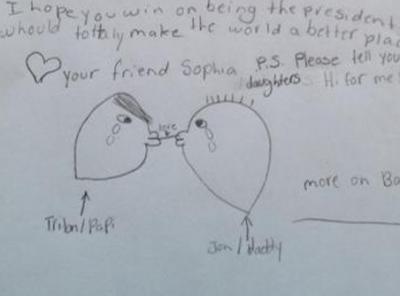 I hope you win on being the president.
whould tottaly make the world a better plac
♡ your friend Sophia P.S. Please tell you
daughters Hi for me!
love
more on Ba
Jon/daddy